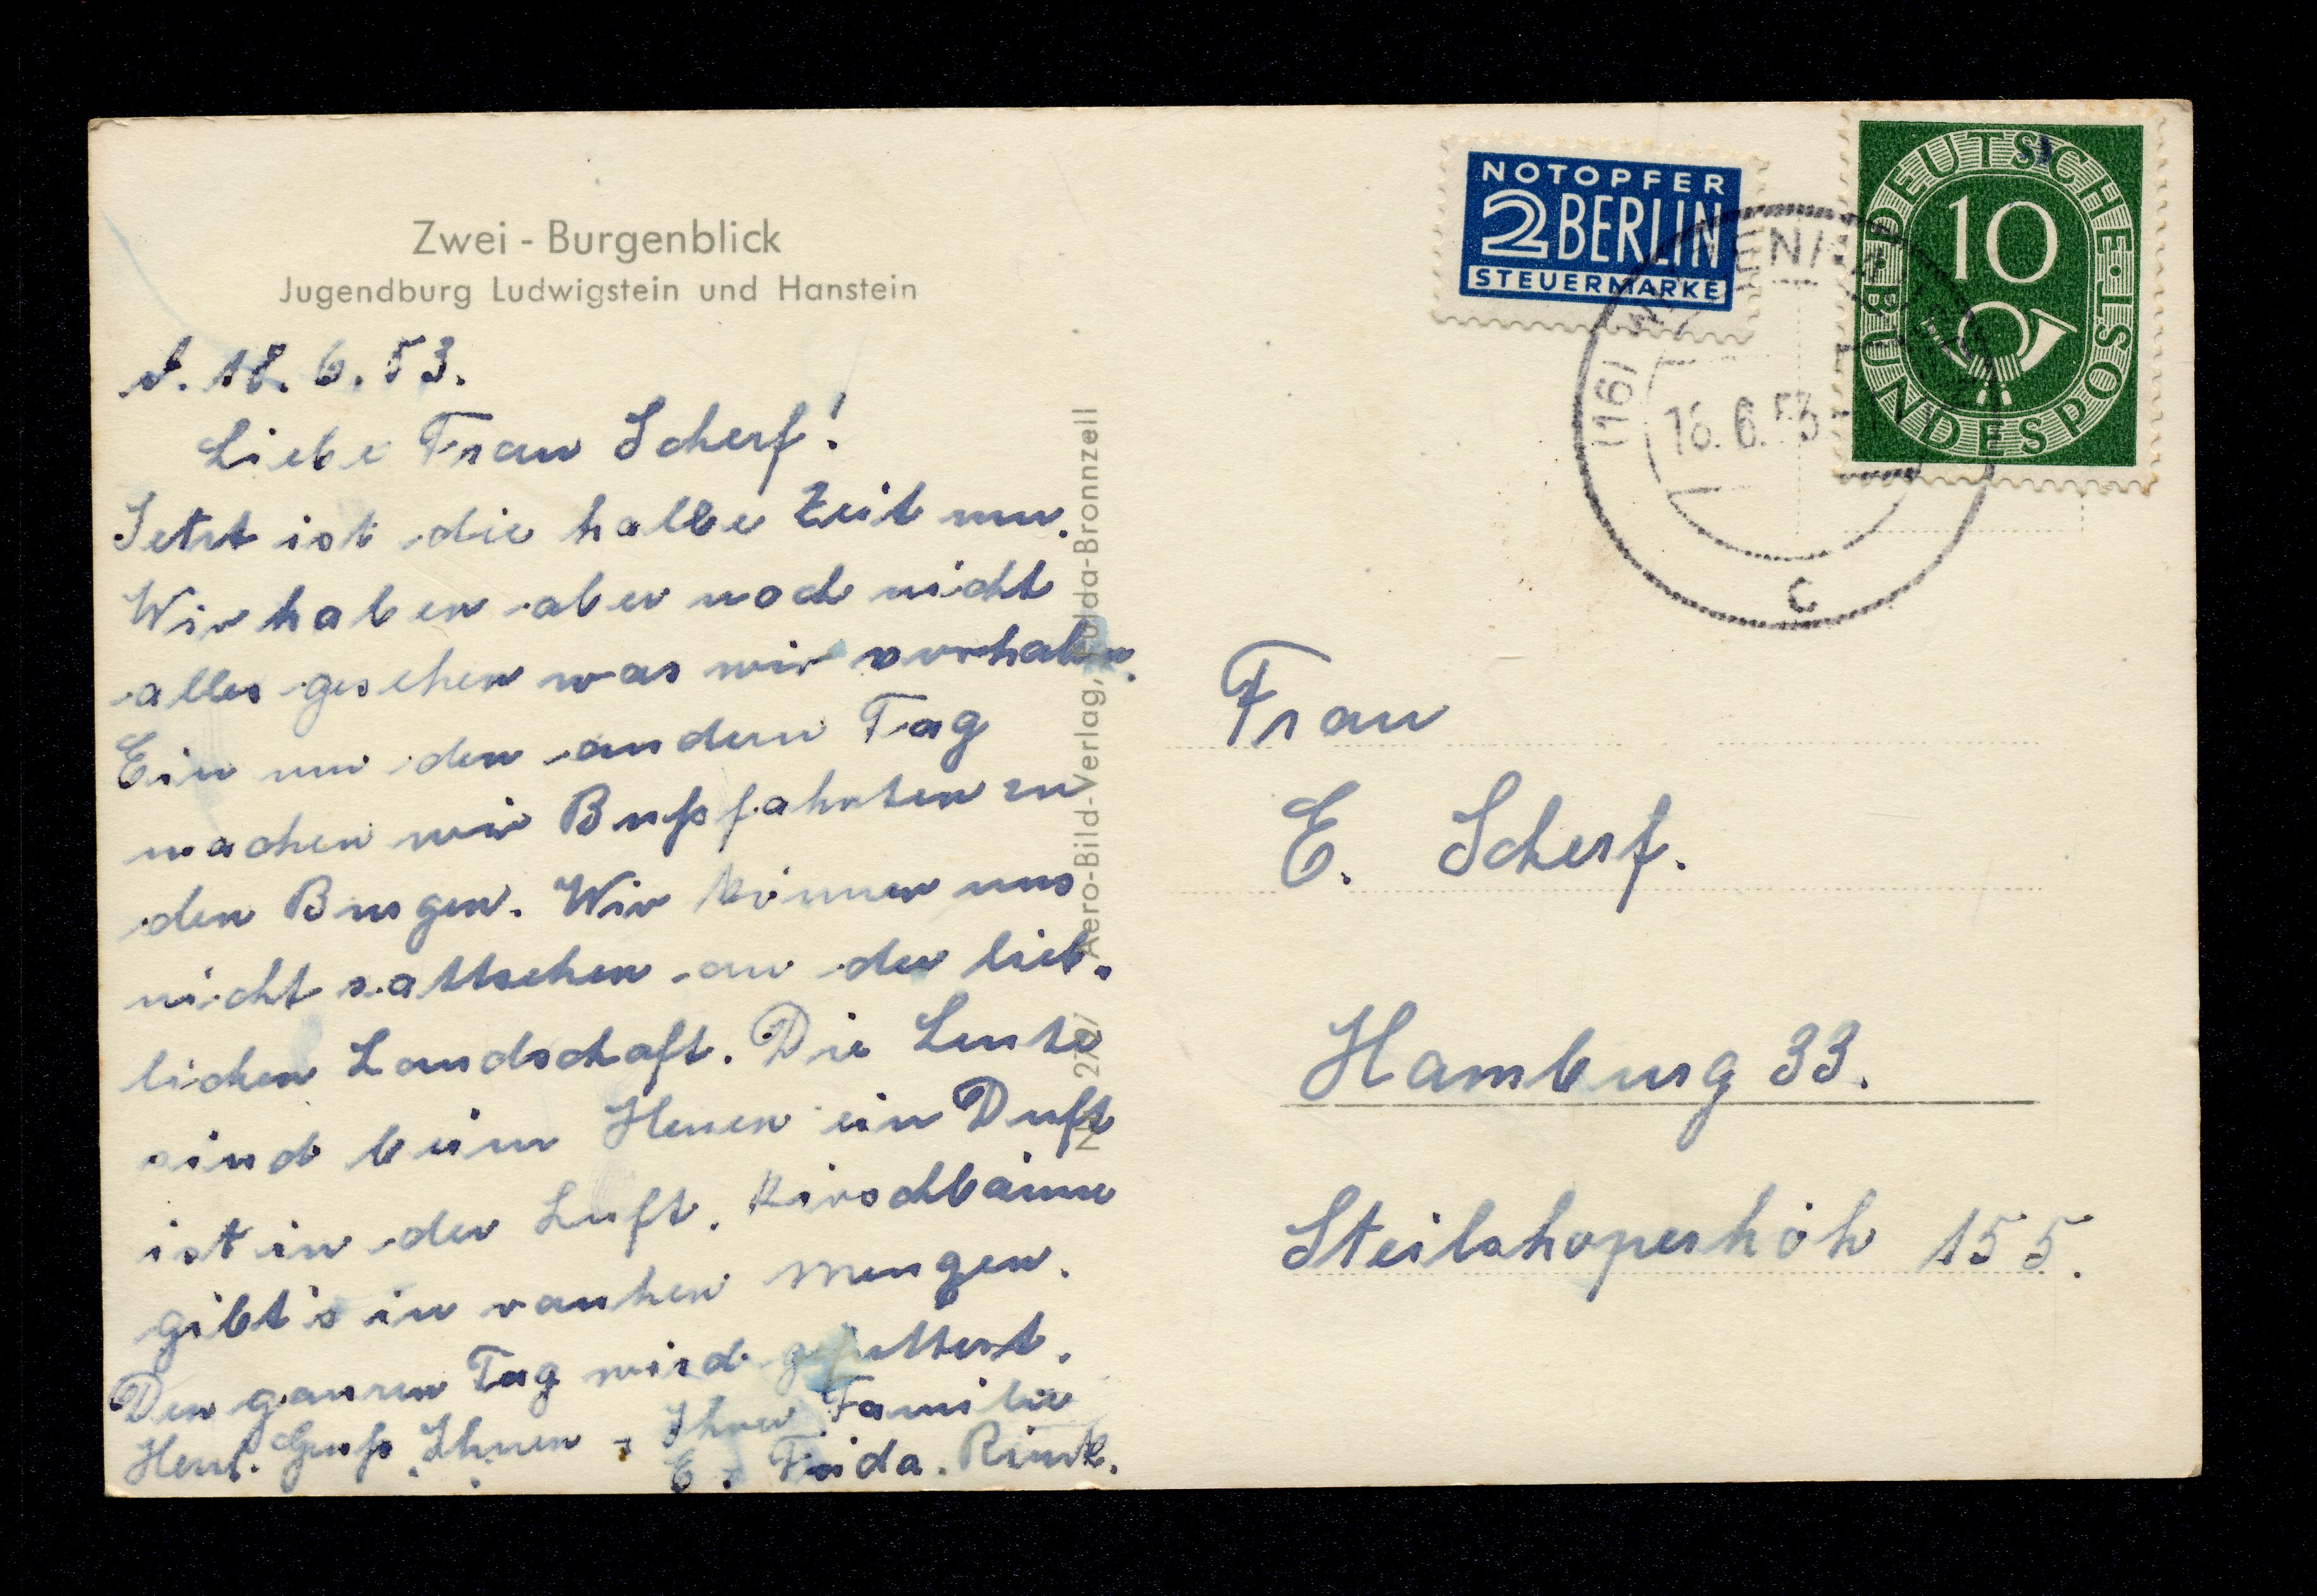 Zwei - Burgenblick
Jugendburg Ludwigstein und Hanstein
d. 18. 6. 53.
Liebe Frau Scherf!
Jetzt ist die halbe Zeit um.
Wir haben aber noch nicht
alles gesehen was wir vorhaben.
Ein um den andern Tag
machen wir Bußfahrten zu
den Burgen. Wir können uns
nicht sattsehen an der lieb-
lichen Landschaft. Die Leute
sind beim Heuen ein Duft
ist in der Luft. Kirschbäume
gibt's in rauhen Mengen.
Den ganzen Tag wird gefuttert.
Herzl. Gruß Ihnen u. Ihrer Familie
E. Frida Rink.
Aero-Bild-Verlag, Fulda-Bronnzell
NOTOPFER
2 BERLIN
STEUERMARKE
DEUTSCHE BUNDESPOST
10
(16)
18. 6. 53
c
Frau
E. Scherf.
Hamburg 33.
Steilshoperhöh 155.